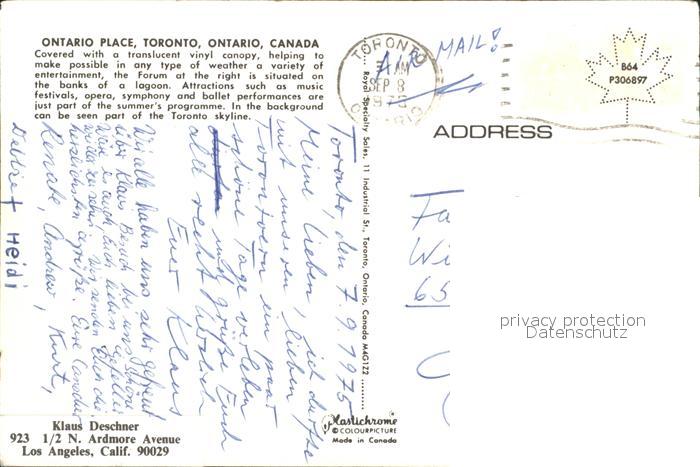 ONTARIO PLACE, TORONTO, ONTARIO, CANADA
Covered with a translucent vinyl canopy, helping to
make possible in any type of weather a variety of
entertainment, the Forum at the right is situated on
the banks of a lagoon. Attractions such as music
festivals, opera, symphony and ballet performances are
just part of the summer's programme. In the background
can be seen part of the Toronto skyline.
TORONTO
AM
SEP 8
1975
ONTARIO
AIR MAIL!
B64
P306897
ADDRESS
Fa
Wi
65
privacy protection
Datenschutz
Royal Specialty Sales, 11 Industrial St., Toronto, Ontario, Canada M4G1Z2
Plastichrome
© COLOURPICTURE
Made in Canada
Toronto, den 7.9.1975
Meine lieben, ich durfte
mit unseren lieben
Torontoern ein paar
schöne Tage verleben
und grüße Euch
alle recht herzlich
Euer Klaus
Wir alle haben uns sehr gefreut
über Klaus Besuch bei uns.
Wir senden Euch die
herzlichsten Grüße. Eure
Renate, Andrew, Kurt,
Debbie + Heidi
Klaus Deschner
923 1/2 N. Ardmore Avenue
Los Angeles, Calif. 90029